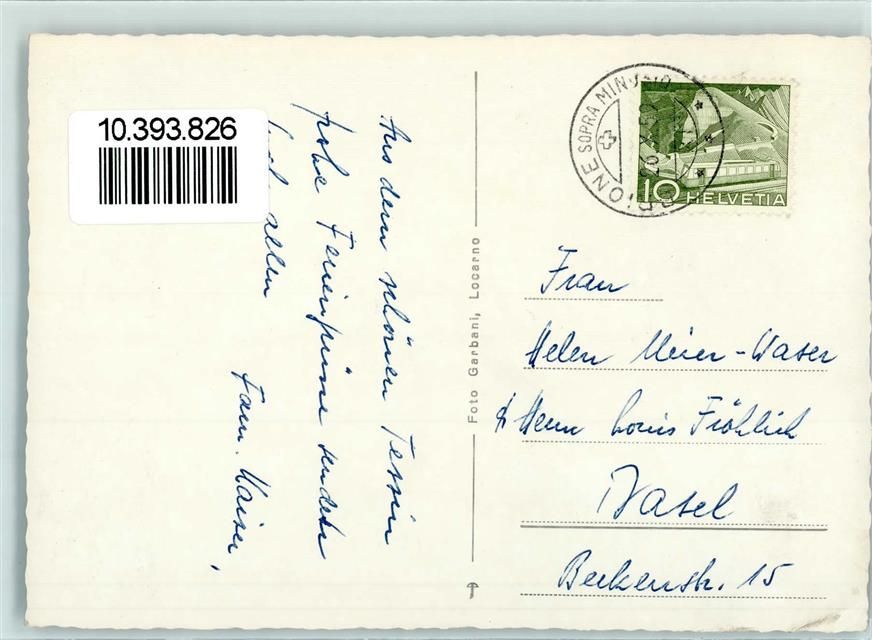 10.393.826
Aus dem schönen Tessin
frohe Feriengrüsse sendet
allen
Fam. Kaiser.
Foto Garbani, Locarno
ORSIONE SOPRA MINUSIO
10 HELVETIA
Frau
Helen Meier-Waser
Herrn Louis Fröhlich
Basel
Beckenstr. 15